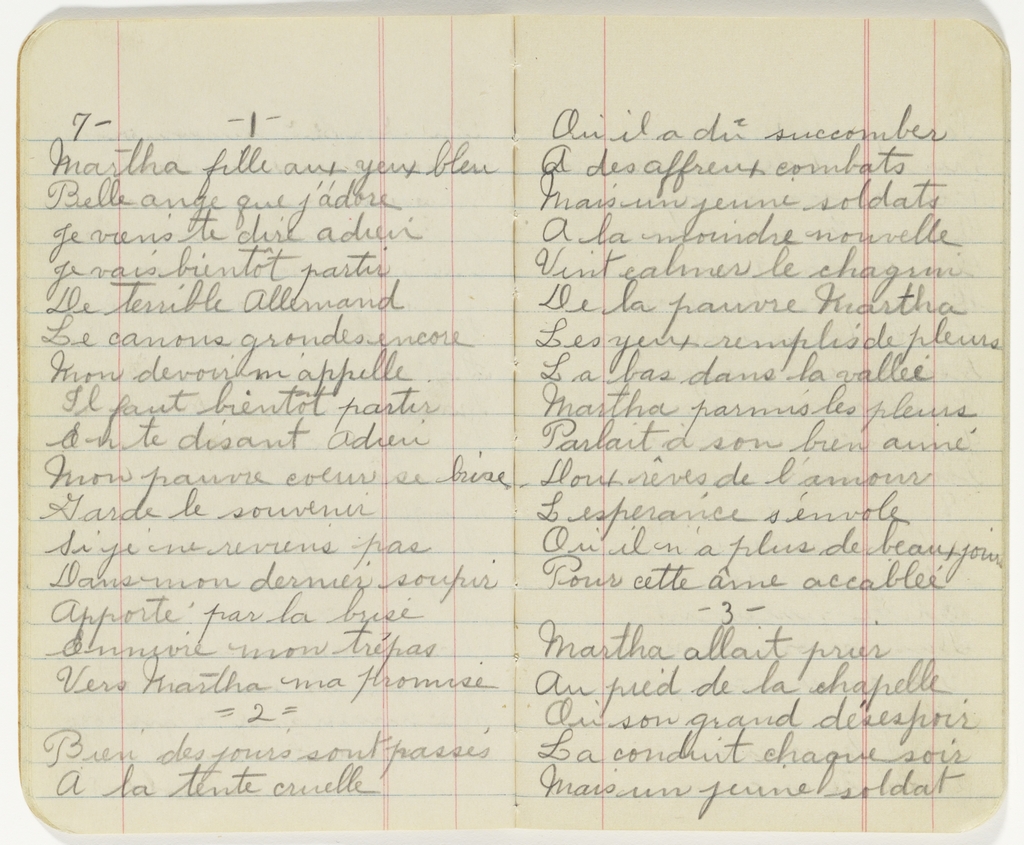 7- -1-
Martha fille aux yeux bleu
Belle ange que j'adore
Je viens te dire adieu
Je vais bientôt partir
De terrible Allemand
Le canons grondes encore
Mon devoir m'appelle
Il faut bientôt partir
En te disant Adieu
Mon pauvre coeur se brise
Garde le souvenir
Si je ne reviens pas
Dans mon dernier soupir
Apporté par la brise
Ennivré mon trépas
Vers Martha ma promise
=2=
Bien des jours sont passés
A la tente cruelle
Ou il a dû succomber
A des affreux combats
Mais un jeune soldats
A la moindre nouvelle
Vint calmer le chagrin
De la pauvre Martha
Les yeux remplis de pleurs
La bas dans la valleé
Martha parmis les pleurs
Parlait à son bien aimé
Doux rêves de l'amour
L'esperance s'envole
Ou il n'a plus de beaux jours
Pour cette âme accableé
-3-
Martha allait prier
Au pied de la chapelle
Ou son grand désespoir
La conduit chaque soir
Mais un jeune soldat